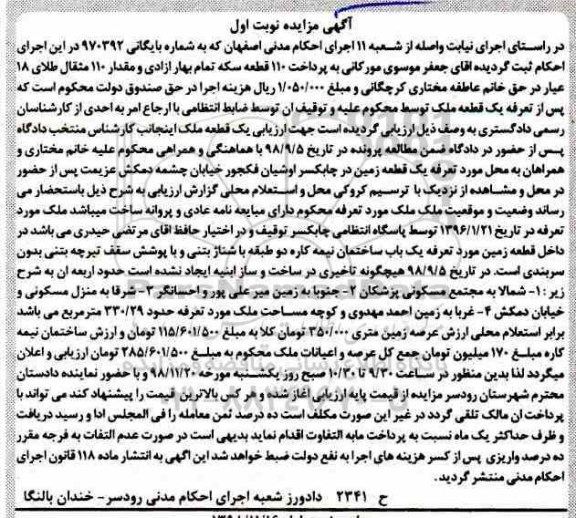 آگهی مزایده نوبت اول
در راستای اجرای نیابت واصله از شعبه ۱۱ اجرای احکام مدنی اصفهان که به شماره بایگانی ۹۷۰۳۹۲ در این اجرای
احکام ثبت گردیده اقای جعفر موسوی مورکانی به پرداخت ۱۱۰ قطعه سکه تمام بهار ازادی و مقدار ۱۱۰ مثقال طلای ۱۸
عیار در حق خانم عاطفه مختاری کرچگانی و مبلغ ۱/۰۵۰/۰۰۰ ریال هزینه اجرا در حق صندوق دولت محکوم است که
پس از تعرفه یک قطعه ملک توسط محکوم علیه و توقیف ان توسط ضابط انتظامی با ارجاع امر به احدی از کارشناسان
رسمی دادگستری به وصف ذیل ارزیابی گردیده است جهت ارزیابی یک قطعه ملک اینجانب کارشناس منتخب دادگاه
پس از حضور در دادگاه ضمن مطالعه پرونده در تاریخ ۹۸/۹/۵ با هماهنگی و همراهی محکوم علیه خانم مختاری و
همراهان به محل مورد تعرفه یک قطعه زمین در چابکسر اوشیان فکجور خیابان چشمه دمکش عزیمت پس از حضور
در محل و مشاهده از نزدیک با ترسیم کروکی محل و استعلام محلی گزارش ارزیابی به شرح ذیل باستحضار می
رساند وضعیت و موقعیت ملک ملک مورد تعرفه محکوم دارای مبایعه نامه عادی و پروانه ساخت میباشد ملک مورد
تعرفه در تاریخ ۱۳۹۶/۱/۲۱ توسط پاسگاه انتظامی چابکسر توقیف و در اختیار حافظ اقای مرتضی حیدری می باشد در
داخل قطعه زمین مورد تعرفه یک باب ساختمان نیمه کاره دو طبقه با شناژ بتنی و با پوشش سقف تیرچه بتنی بدون
سربندی است. در تاریخ ۹۸/۹/۵ هیچگونه تأخیری در ساخت و ساز ابنیه ایجاد نشده است حدود اربعه ان به شرح
زیر :۱- شمالا به مجتمع مسکونی پزشکان ۲- جنوبا به زمین میر علی پور و احسانگر ۳- شرقا به منزل مسکونی و
خیابان دمکش ۴- غربا به زمین احمد مهدوی و کوچه مساحت ملک مورد تعرفه حدود ۳۳۰/۲۹ مترمربع می باشد
برابر استعلام محلی ارزش عرصه زمین متری ۳۵۰/۰۰۰ تومان کلا به مبلغ ۱۱۵/۶۰۱/۵۰۰ تومان و ارزش ساختمان نیمه
کاره مبلغ ۱۷۰ میلیون تومان جمع کل عرصه و اعیانات ملک محکوم به مبلغ ۲۸۵/۶۰۱/۵۰۰ تومان ارزیابی و اعلان
میگردد لذا بدین منظور در ساعت ۹/۳۰ تا ۱۰/۳۰ صبح روز یکشنبه مورخه ۹۸/۱۱/۲۰ و با حضور نماینده دادستان
محترم شهرستان رودسر مزایده از قیمت پایه ارزیابی آغاز شده و هر کس بالاترین قیمت را پیشنهاد کند می تواند با
پرداخت ان مالک تلقی گردد در غیر این صورت مکلف است ده درصد ثمن معامله را فی المجلس ادا و رسید دریافت
و ظرف حداکثر یک ماه نسبت به پرداخت مابه التفاوت اقدام نماید بدیهی است در صورت عدم التفات به فرجه مقرر
ده درصد واریزی پس از کسر هزینه های اجرا به نفع دولت ضبط خواهد شد این اگهی به انتشار ماده ۱۱۸ قانون اجرای
احکام مدنی منتشر گردید.
ح ۲۳۴۱ دادورز شعبه اجرای احکام مدنی رودسر- خندان بالنگا